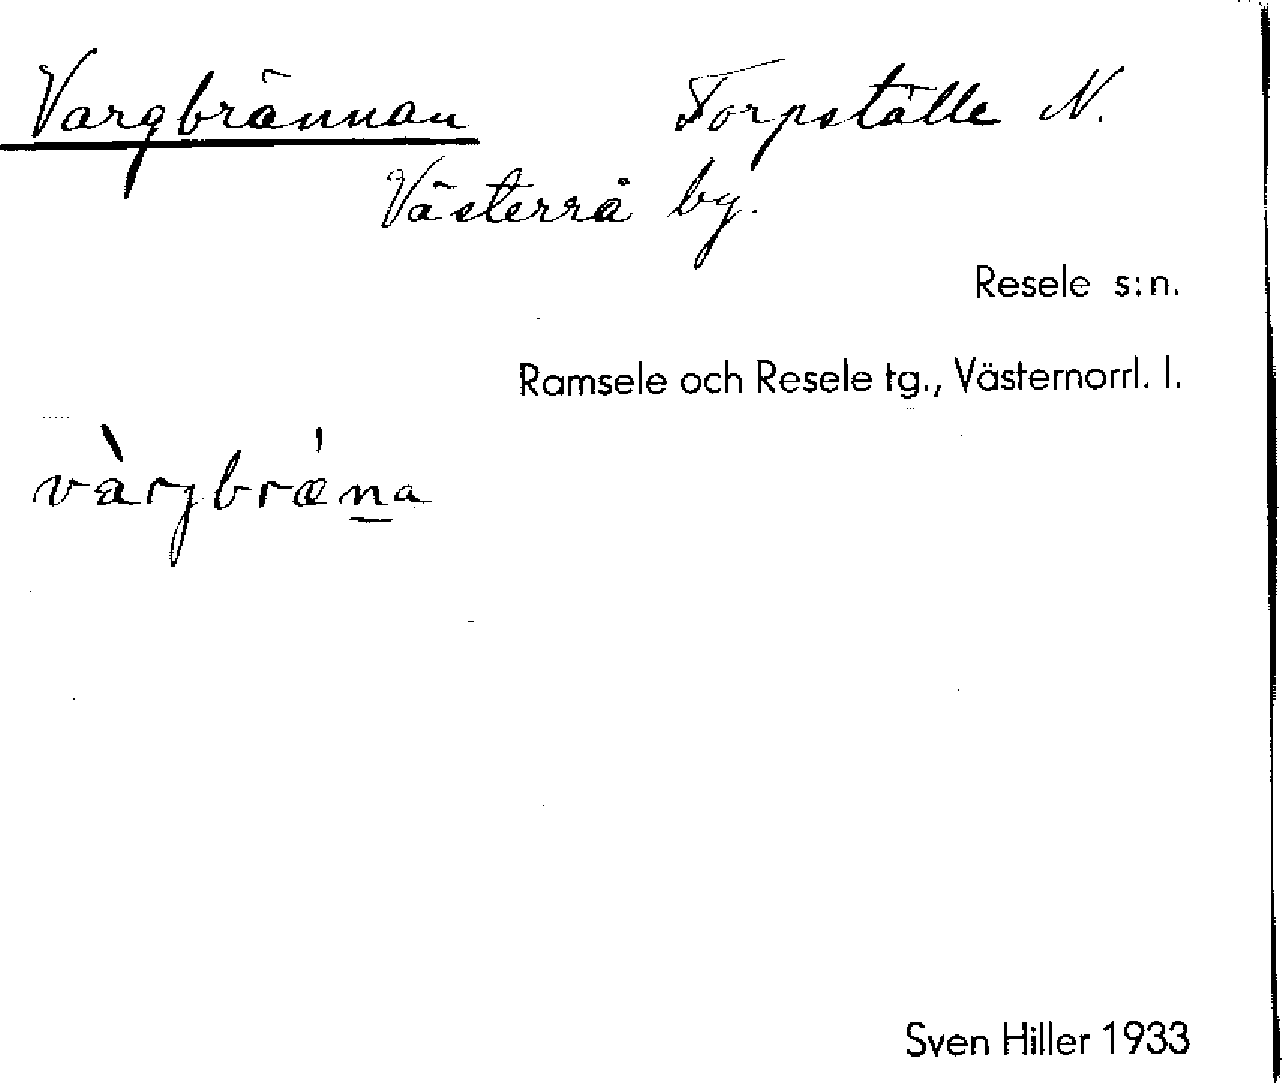 Vargbrännan Torpställe N.
Västerrå by.
Resele s:n.
Ramsele och Resele tg., Västernorrl. l.
vàrjbrǽn̲a
Sven Hiller 1933